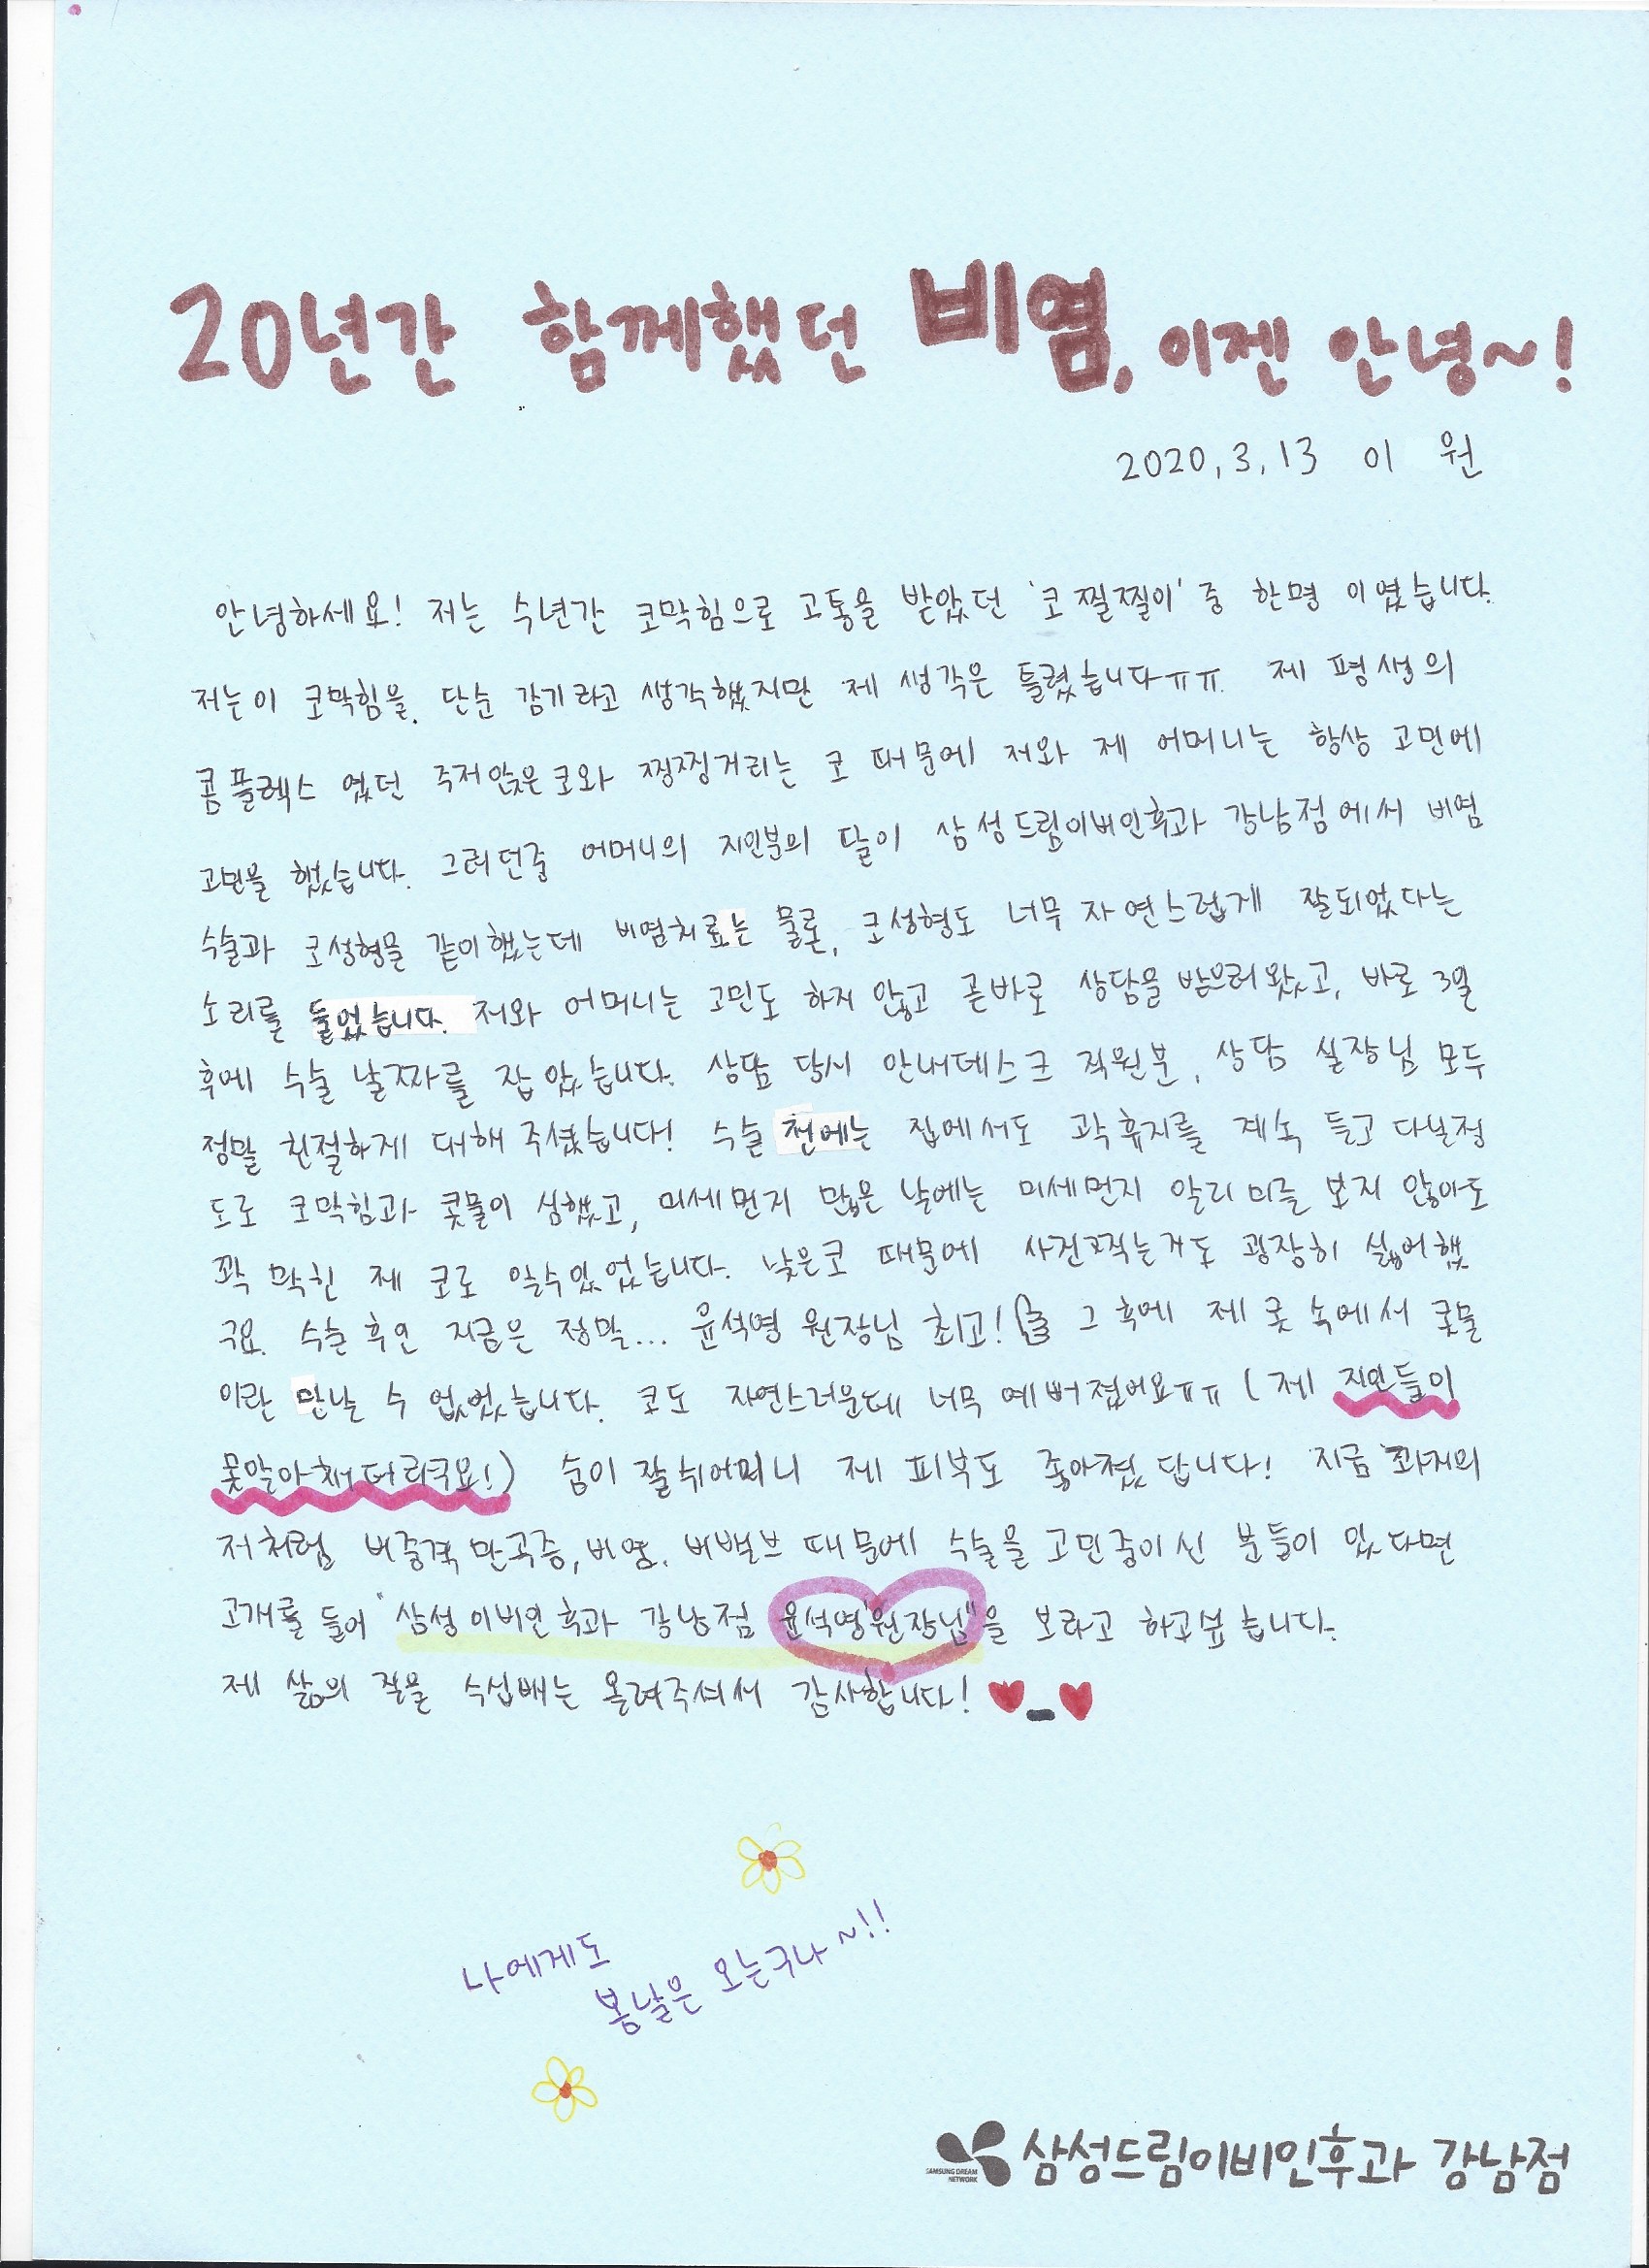 20년간 함께했던 비염, 이젠 안녕~!
2020.3.13 이 원
안녕하세요! 저는 수년간 코막힘으로 고통을 받았던 '코찔찔이' 중 한명 이였습니다.
저는이 코막힘을 단순 감기라고 생각했지만 제 생각은 틀렸습니다ㅠㅠ. 제 평생의
콤플렉스 였던 주저앉은코와 찡찡거리는 코 때문에 저와 제 어머니는 항상 고민에
고민을 했습니다. 그러던중 어머니의 지인분의 딸이 삼성드림이비인후과 강남점에서 비염
수술과 코성형을 같이했는데 비염치료는 물론, 코성형도 너무 자연스럽게 잘되었다는
소리를 들었습니다. 저와 어머니는 고민도 하지 않고 곧바로 상담을 받으러왔고, 바로 3일
후에 수술 날짜를 잡았습니다. 상담 당시 안내데스크 직원분, 상담 실장님 모두
정말 친절하게 대해 주셨습니다! 수술 전에는 집에서도 곽휴지를 계속 들고 다닐정
도로 코막힘과 콧물이 심했고, 미세먼지 많은 날에는 미세먼지 알리미를 보지 않아도
꽉 막힌 제 코로 알수있었습니다. 낮은코 때문에 사진찍는거도 굉장히 싫어했
구요. 수술 후인 지금은 정말... 윤석영 원장님 최고! 그 후에 제 콧 속에서 콧물
이란 만날 수 없었습니다. 코도 자연스러운데 너무 예뻐졌어요ㅠㅠ (제 지인들이
못알아채더라구요!) 숨이 잘쉬어지니 제 피부도 좋아졌답니다! 지금 과거의
저처럼 비중격 만곡증, 비염, 비밸브 때문에 수술을 고민중이신 분들이 있다면
고개를 들어 "삼성이비인후과 강남점 윤석영 원장님"을 보라고 하고싶습니다.
제 삶의 질을 수십배는 올려주셔서 감사합니다! ♥_♥
나에게도
봄날은 오는구나~!!
삼성드림이비인후과 강남점
SAMSUNG DREAM
NETWORK